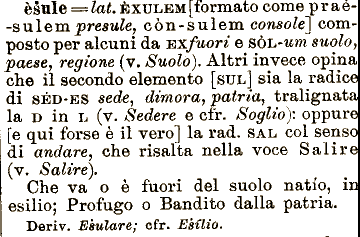 èsule = lat. ÈXULEM [formato come praè-
-sulem presule, còn-sulem console] com-
posto per alcuni da EX fuori e SÒL-um suolo,
paese, regione (v. Suolo). Altri invece opina
che il secondo elemento [SUL] sia la radice
di SÉD-ES sede, dimora, patria, tralignata
la D in L (v. Sedere e cfr. Soglio): oppure
[e qui forse è il vero] la rad. SAL col senso
di andare, che risalta nella voce Salire
(v. Salire).
Che va o è fuori del suolo natío, in
esilio; Profugo o Bandito dalla patria.
Deriv. Esulare; cfr. Esílio.